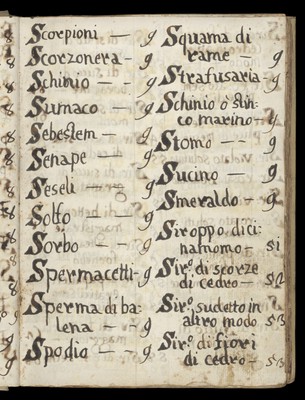 Scorpioni — 9
Scorzonera - 9
Schinio — 9
Sumaco — 9
Sebestem — 9
Senape — 9
Seseli — 9
Solfo — 9
Sorbo — - 9
Spermacetti - 9
Sperma di ba:
lena — - 9
Spodio — 9
Squama di
rame — 9
Strafusaria - 9
Schinio o stin:
co marino - 9
Stomo — - - 9
Sucino — - 9
Smeraldo - 9
Siroppo di ci:
namomo - 51
Sir.º di scorze
di cedro - 52
Sir.º sudetto in
altro modo 53
Sir.º di fiori
di cedro - 53